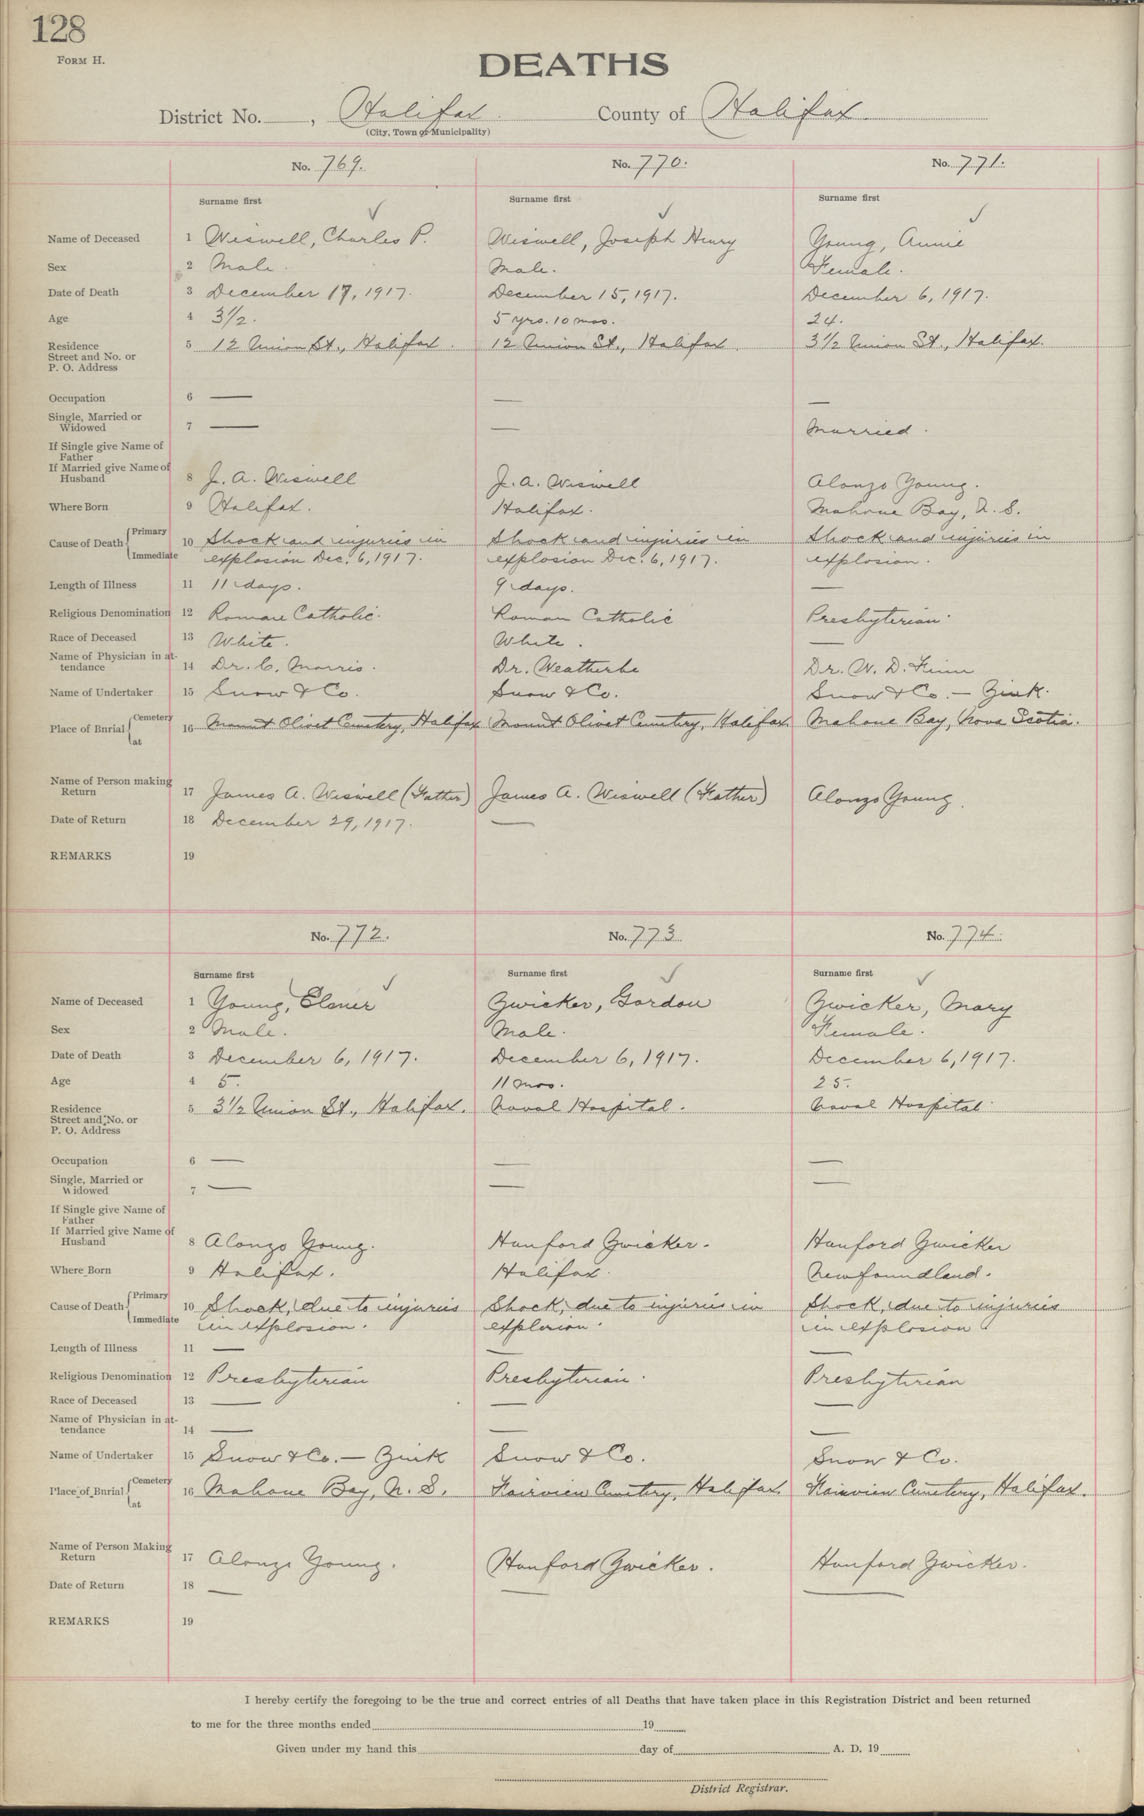 128
FORM H.
DEATHS
District No. , Halifax County of Halifax
(City, Town or Municipality)
No. 769. No. 770. No. 771.
Surname first Surname first Surname first
Name of Deceased 1 Wiswell, Charles P. Wiswell, Joseph Henry Young, Annie
Sex 2 Male. Male. Female.
Date of Death 3 December 17, 1917. December 15, 1917. December 6, 1917.
Age 4 3½. 5 yrs. 10 mos. 24.
Residence 5 12 Union St., Halifax. 12 Union St., Halifax 3½ Union St., Halifax.
Street and No. or
P. O. Address
Occupation 6 — — —
Single, Married or
Widowed 7 — — Married.
If Single give Name of
Father
If Married give Name of
Husband 8 J. A. Wiswell J. A. Wiswell Alonzo Young.
Where Born 9 Halifax. Halifax. Mahone Bay, N. S.
Cause of Death { Primary 10 Shock and injuries in Shock and injuries in Shock and injuries in
Immediate explosion Dec. 6, 1917. explosion Dec. 6, 1917. explosion.
Length of Illness 11 11 days. 9 days. —
Religious Denomination 12 Roman Catholic. Roman Catholic Presbyterian.
Race of Deceased 13 White. White. —
Name of Physician in at-
tendance 14 Dr. C. Morris. Dr. Weatherbe Dr. W. D. Finn
Name of Undertaker 15 Snow & Co. Snow & Co. Snow & Co. — Zink.
Place of Burial { Cemetery 16 Mount Olivet Cemetery, Halifax Mount Olivet Cemetery, Halifax Mahone Bay, Nova Scotia.
at
Name of Person making
Return 17 James A. Wiswell (Father) James A. Wiswell (Father) Alonzo Young.
Date of Return 18 December 29, 1917. —
REMARKS 19
No. 772. No. 773 No. 774.
Surname first Surname first Surname first
Name of Deceased 1 Young, Elmer Zwicker, Gordon Zwicker, Mary
Sex 2 Male. Male. Female.
Date of Death 3 December 6, 1917. December 6, 1917. December 6, 1917.
Age 4 5. 11 mos. 25.
Residence 5 3½ Union St., Halifax. Naval Hospital. Naval Hospital.
Street and No. or
P. O. Address
Occupation 6 — — —
Single, Married or
Widowed 7 — — —
If Single give Name of
Father
If Married give Name of
Husband 8 Alonzo Young. Hanford Zwicker. Hanford Zwicker
Where Born 9 Halifax. Halifax. Newfoundland.
Cause of Death { Primary 10 Shock, due to injuries Shock, due to injuries in Shock, due to injuries
Immediate in explosion. explosion. in explosion.
Length of Illness 11 — — —
Religious Denomination 12 Presbyterian Presbyterian. Presbyterian
Race of Deceased 13 — — —
Name of Physician in at-
tendance 14 — — —
Name of Undertaker 15 Snow & Co. — Zink Snow & Co. Snow & Co.
Place of Burial { Cemetery 16 Mahone Bay, N. S. Fairview Cemetery, Halifax. Fairview Cemetery, Halifax.
at
Name of Person Making
Return 17 Alonzo Young. Hanford Zwicker. Hanford Zwicker.
Date of Return 18 — — —
REMARKS 19
I hereby certify the foregoing to be the true and correct entries of all Deaths that have taken place in this Registration District and been returned
to me for the three months ended 19
Given under my hand this day of A. D. 19
District Registrar.